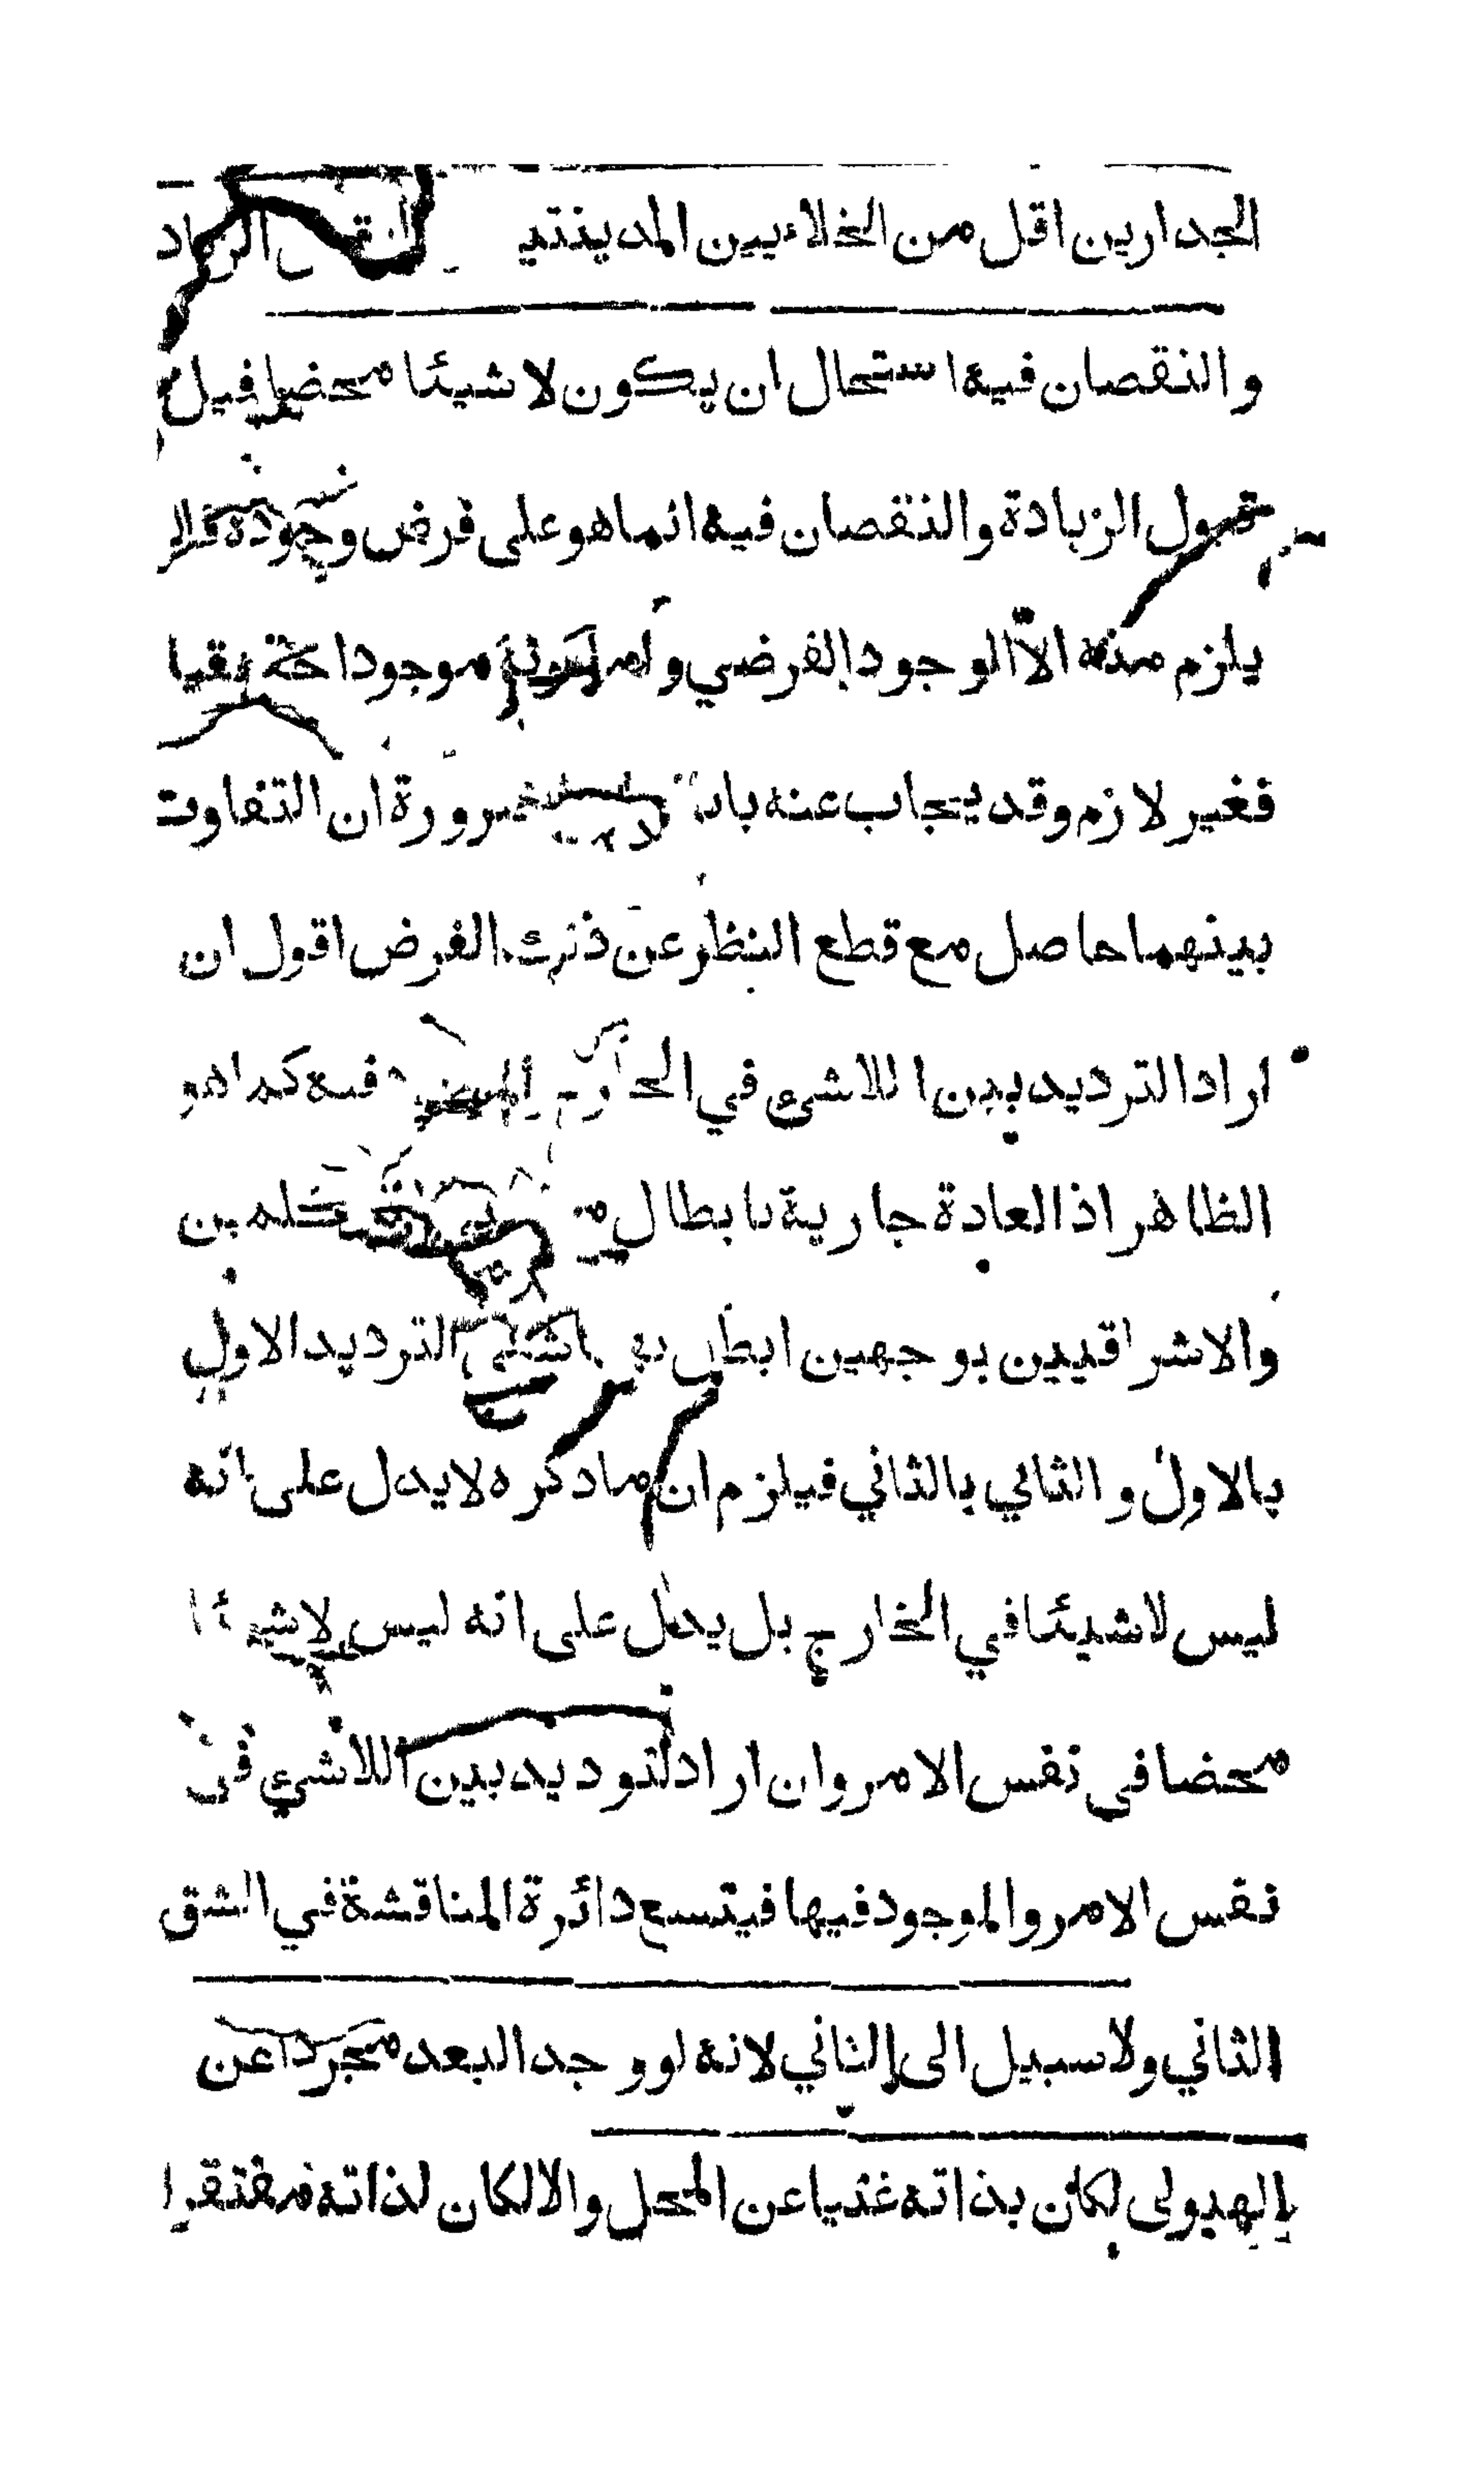 الجدارين اقل من الخلاء بين المدينتين
والنقصان فيه استحال ان يكون لا شيئا محضا قيل
قبول الزيادة والنقصان فيه انما هو على فرض وجوده فلا
يلزم منه الاّ الوجود الفرضي واما كونه موجودا حقيقيا
فغير لازم وقد يجاب عنه ضرورة ان التفاوت
بينهما حاصل مع قطع النظر عن ذلك الفرض اقول ان
اراد الترديد بين اللاشئ في الخارج فيه كما هو
الظاهر اذ العادة جارية بابطال
والاشراقيين بوجهين الترديد الاول
بالاول والثاني بالثاني فيلزم ان ما ذكره لا يدل على انه
ليس لا شيئا في الخارج بل يدل على انه ليس لا شيئا
محضا في نفس الامر وان اراد لتوديد بين اللاشئ في
نفس الامر والموجود فيها فيتسع دائرة المناقشة في الشق
الثاني ولا سبيل الى الثاني لانه لو وجد البعد مجردا عن
الهيولى لكان بذاته غنيا عن المحل والا لكان لذاته مفتقرا